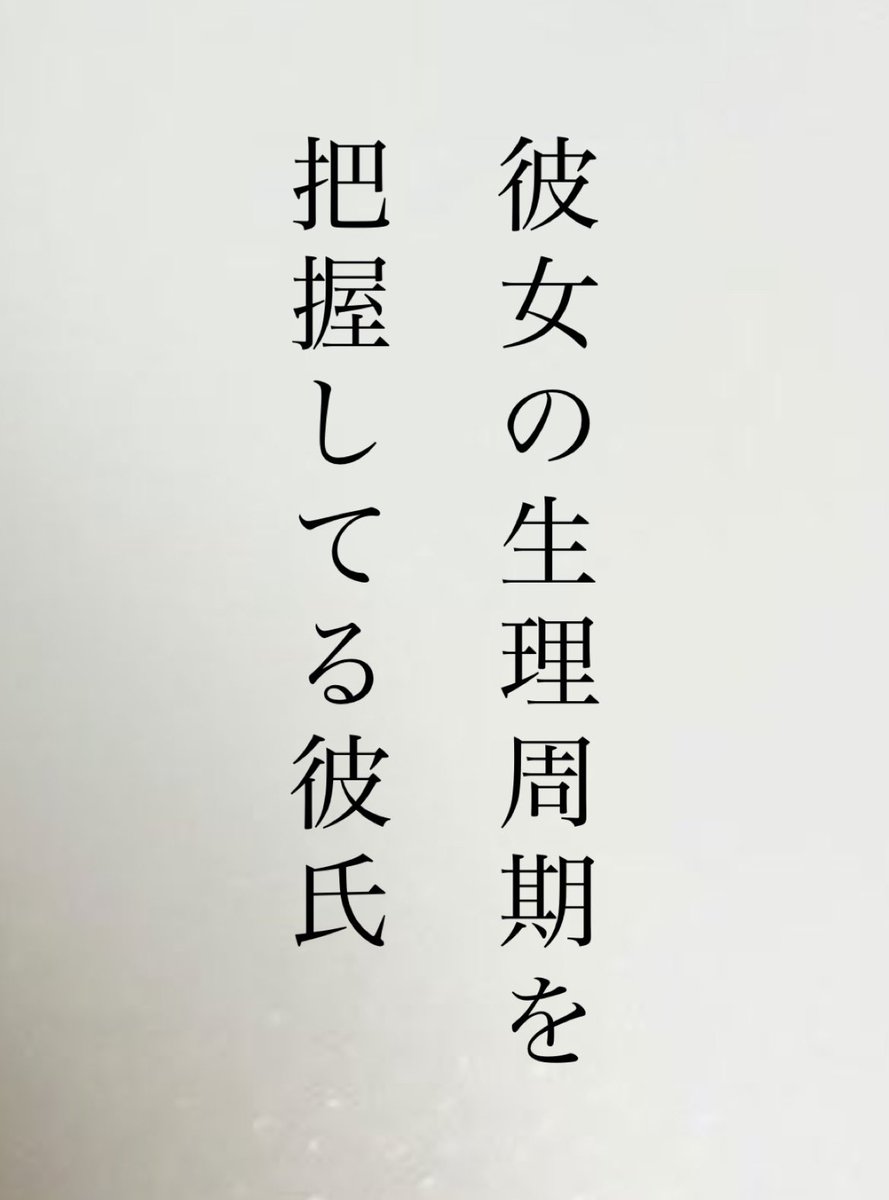 彼女の生理周期を
把握してる彼氏